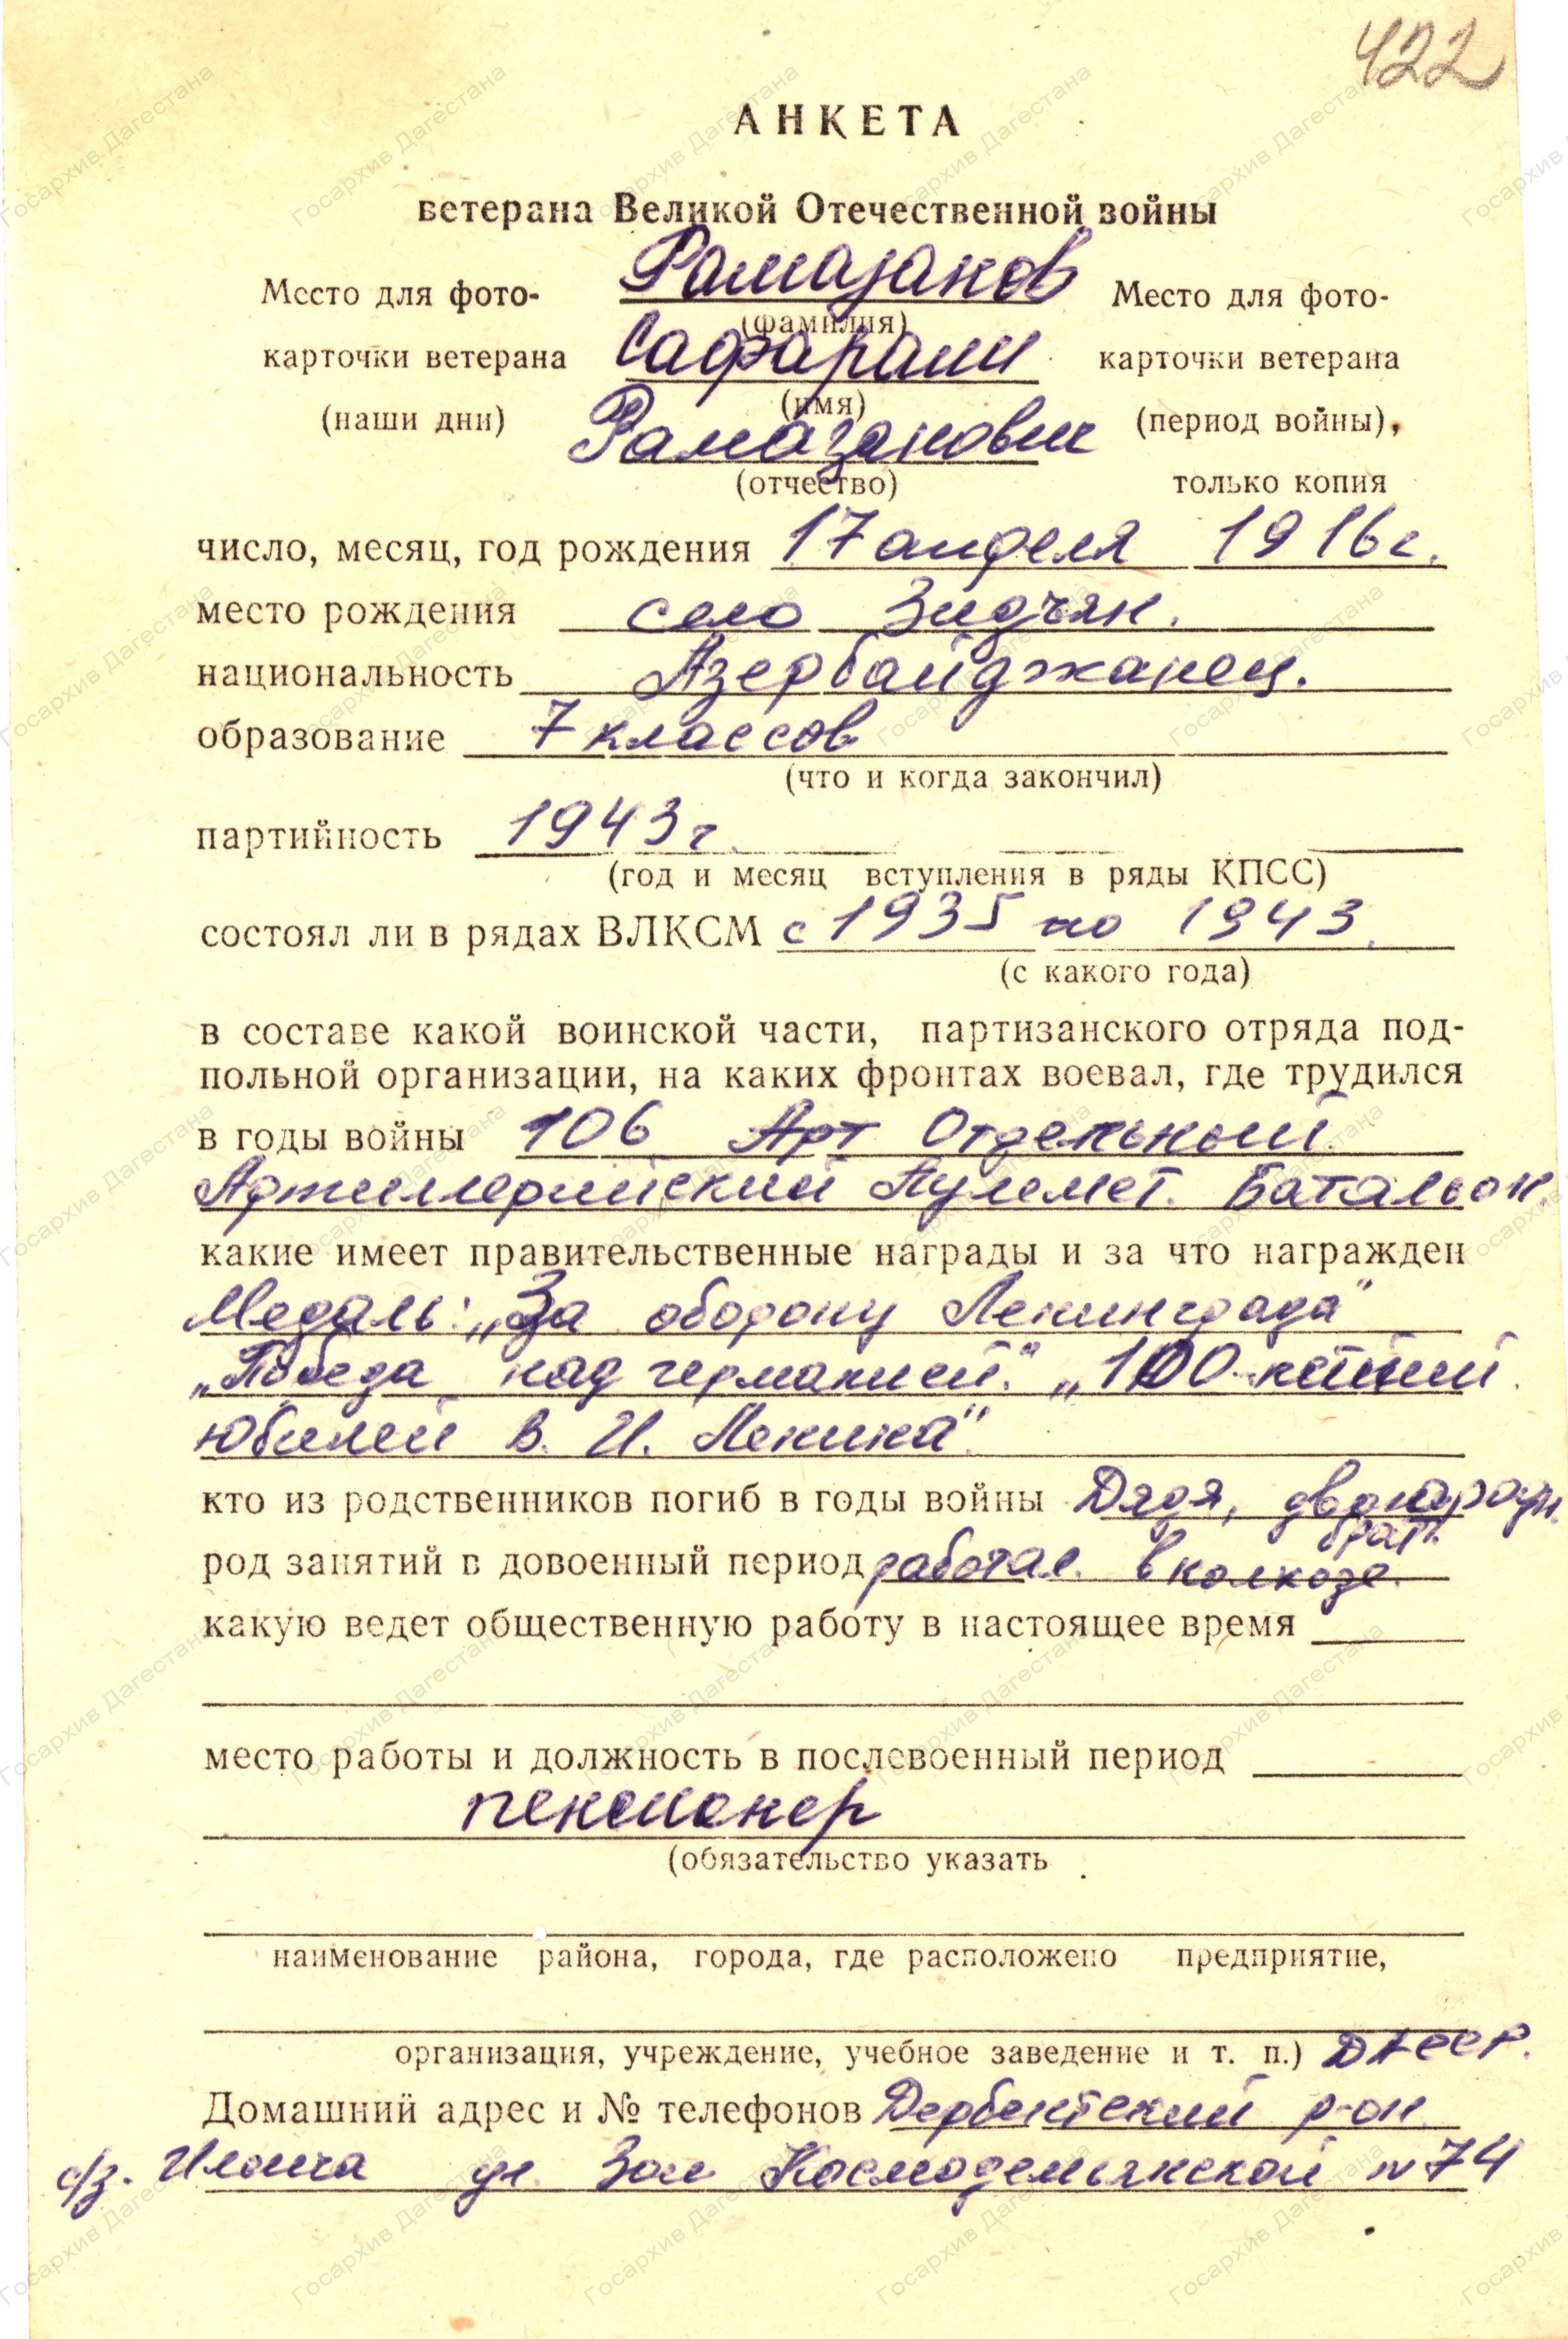 422
АНКЕТА
ветерана Великой Отечественной войны
Место для фото- Рамазанов Место для фото-
(фамилия)
карточки ветерана Сафарали карточки ветерана
(имя)
(наши дни) Рамазанович (период войны),
(отчество) только копия
число, месяц, год рождения 17 апреля 1916 г.
место рождения село Зидьян.
национальность Азербайджанец.
образование 7 классов
(что и когда закончил)
партийность 1943 г.
(год и месяц вступления в ряды КПСС)
состоял ли в рядах ВЛКСМ с 1935 по 1943.
(с какого года)
в составе какой воинской части, партизанского отряда под-
польной организации, на каких фронтах воевал, где трудился
в годы войны 106 Арт Отдельный
Артиллерийский Пулемет. Батальон.
какие имеет правительственные награды и за что награжден
Медаль: „За оборону Ленинграда"
„Победа над германией." „100-летний
юбилей В. И. Ленина".
кто из родственников погиб в годы войны Дядя, двоюродн.
брат.
род занятий в довоенный период работал. в колхозе.
какую ведет общественную работу в настоящее время
место работы и должность в послевоенный период
пенсионер
(обязательство указать
наименование района, города, где расположено предприятие,
организация, учреждение, учебное заведение и т. п.) ДАССР.
Домашний адрес и № телефонов Дербентский р-он
с/з. Ильича ул. Зои Космодемьянской № 74
Госархив Дагестана